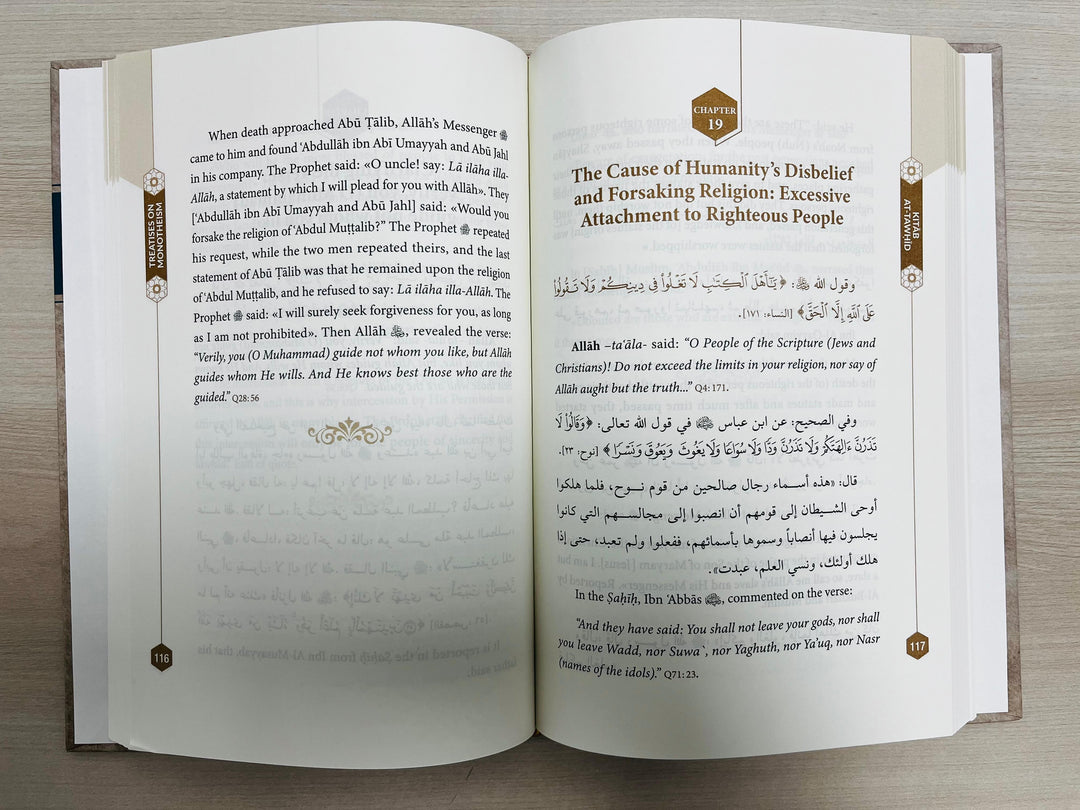 When death approached Abū Ṭālib, Allāh's Messenger ﷺ
came to him and found 'Abdullāh ibn Abī Umayyah and Abū Jahl
in his company. The Prophet said: «O uncle! say: Lā ilāha illa-
Allāh, a statement by which I will plead for you with Allāh». They
['Abdullāh ibn Abī Umayyah and Abū Jahl] said: «Would you
forsake the religion of 'Abdul Muṭṭalib?” The Prophet ﷺ repeated
his request, while the two men repeated theirs, and the last
statement of Abū Ṭālib was that he remained upon the religion
of 'Abdul Muṭṭalib, and he refused to say: Lā ilāha illa-Allāh. The
Prophet ﷺ said: «I will surely seek forgiveness for you, as long
as I am not prohibited». Then Allāh, revealed the verse:
“Verily, you (O Muhammad) guide not whom you like, but Allāh
guides whom He wills. And He knows best those who are the
guided.” Q28: 56
TREATISES ON
MONOTHEISM
116
CHAPTER
19
The Cause of Humanity's Disbelief
and Forsaking Religion: Excessive
Attachment to Righteous People
وقول الله ﷻ: ﴿يَـٰٓأَهْلَ ٱلْكِتَـٰبِ لَا تَغْلُوا۟ فِى دِينِكُمْ وَلَا تَقُولُوا۟
عَلَى ٱللَّهِ إِلَّا ٱلْحَقَّ﴾ [النساء: ١٧١].
Allāh –ta'āla- said: “O People of the Scripture (Jews and
Christians)! Do not exceed the limits in your religion, nor say of
Allāh aught but the truth...” Q4: 171.
وفي الصحيح: عن ابن عباس في قول الله تعالى: ﴿وَقَالُوا۟ لَا
تَذَرُنَّ ءَالِهَتَكُمْ وَلَا تَذَرُنَّ وَدًّا وَلَا سُوَاعًا وَلَا يَغُوثَ وَيَعُوقَ وَنَسْرًا﴾ [نوح: ٢٣].
قال: «هذه أسماء رجال صالحين من قوم نوح، فلما هلكوا
أوحى الشيطان إلى قومهم أن انصبوا إلى مجالسهم التي كانوا
يجلسون فيها أنصاباً وسموها بأسمائهم، ففعلوا ولم تعبد، حتى إذا
هلك أولئك، ونسي العلم، عبدت».
In the Ṣaḥīḥ, Ibn 'Abbās, commented on the verse:
“And they have said: You shall not leave your gods, nor shall
you leave Wadd, nor Suwa`, nor Yaghuth, nor Ya'uq, nor Nasr
(names of the idols).” Q71: 23.
KITĀB
AT-TAWḤĪD
117